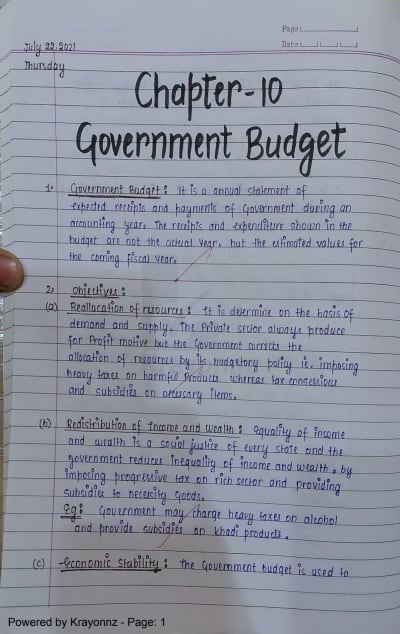 Page:
Date
July 22, 2021
Thursday
Chapter-10
Government Budget
1. Government Budget: It is a annual statement of
expected receipts and payments of Government during an
accounting year. The receipts and expenditure shown in the
budget are not the actual year, but the estimated values for
the coming fiscal year.
2. Objectives:
(a) Reallocation of resources: It is determine on the basis of
demand and supply. The Private sector always produce
for Profit motive but the Government corrects the
allocation of resources by its budgetary policy ie. imposing
heavy taxes on harmful products whereas tax concessions
and subsidies on necessary items.
(b) Redistribution of Income and wealth: Equality of income
and wealth is a social justice of every state and the
government reduces inequality of income and wealth, by
imposing progressive tax on rich sector and providing
subsidies to necessity goods.
Eg: Government may charge heavy taxes on alcohol
and provide subsidies on khadi products.
(c) Economic Stability: The Government budget is used to
Powered by Krayonnz - Page: 1